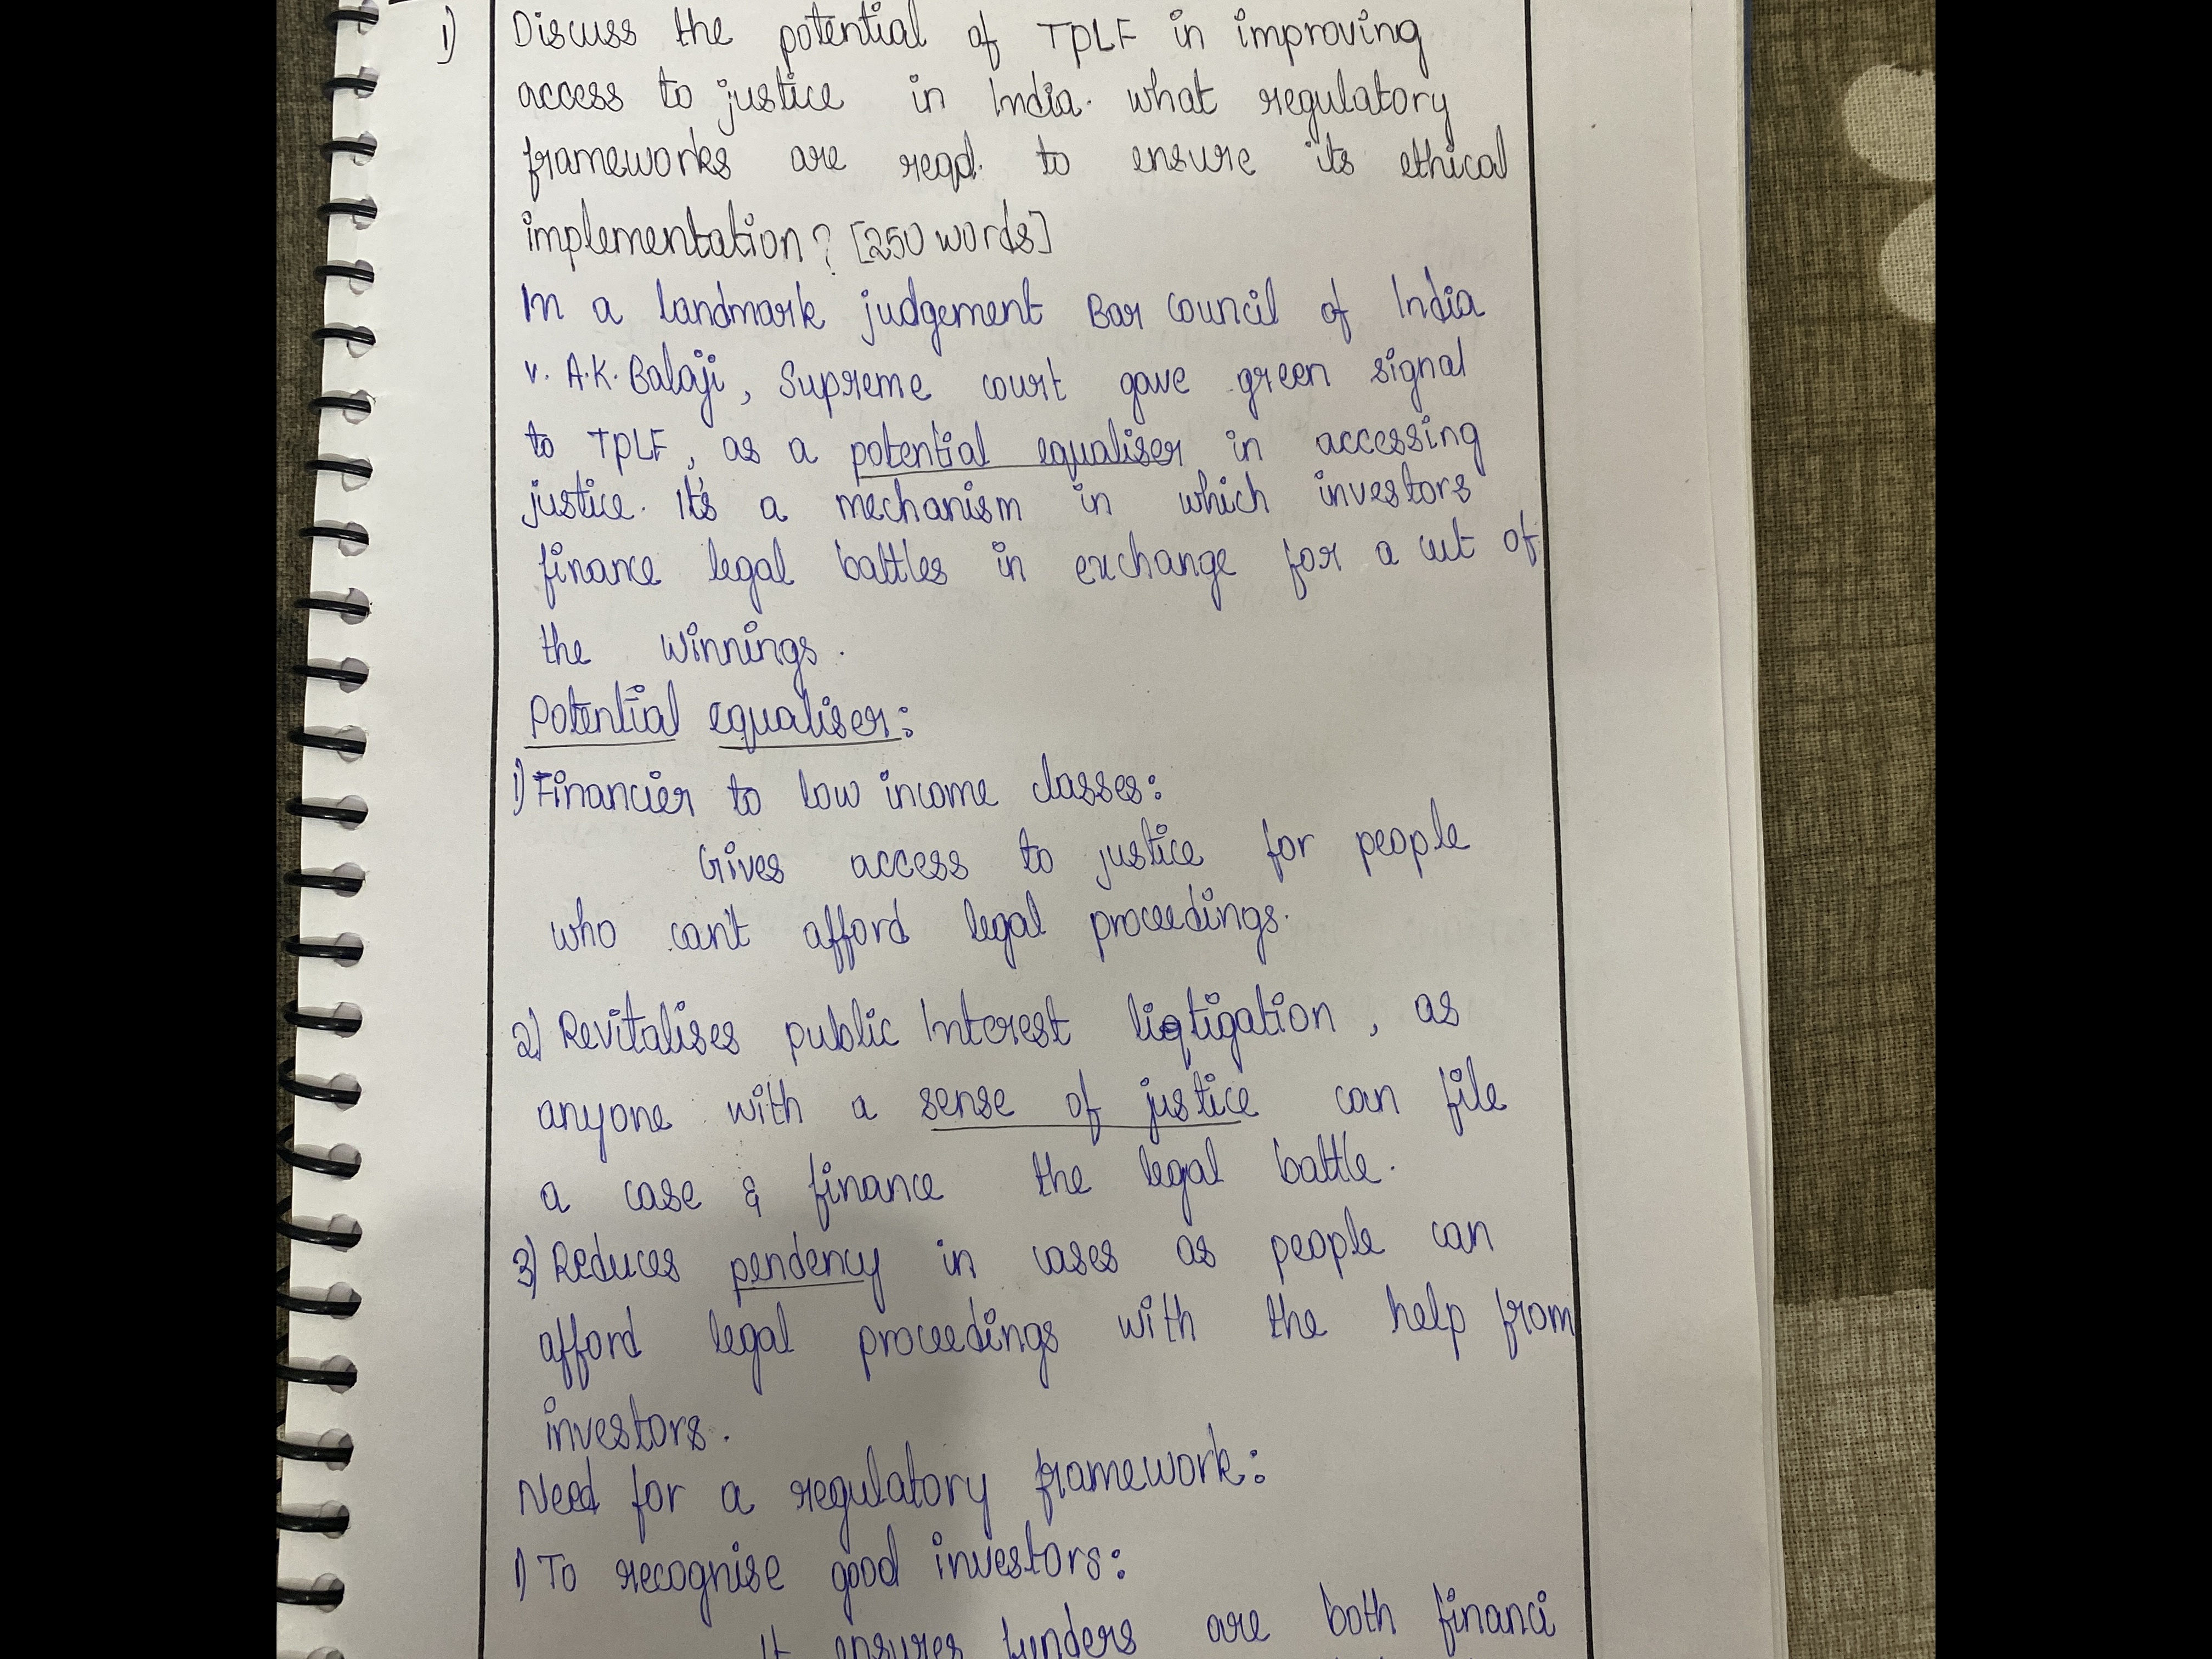 1) Discuss the potential of TPLF in improving
access to justice in India. what regulatory
frameworks are reqd. to ensure its ethical
implementation? [250 words]
In a landmark judgement Bar council of India
v. A.K. Balaji, Supreme court gave green signal
to TPLF, as a potential equaliser in accessing
justice. It's a mechanism in which investors
finance legal battles in exchange for a cut of
the winnings.
Potential equaliser:
1) Financier to low income classes:
Gives access to justice for people
who can't afford legal proceedings.
2) Revitalises public Interest liqtigation, as
anyone with a sense of justice can file
a case & finance the legal battle.
3) Reduces pendency in cases as people can
afford legal proceedings with the help from
investors.
Need for a regulatory framework:
1) To recognise good investors:
It ensures funders are both financi